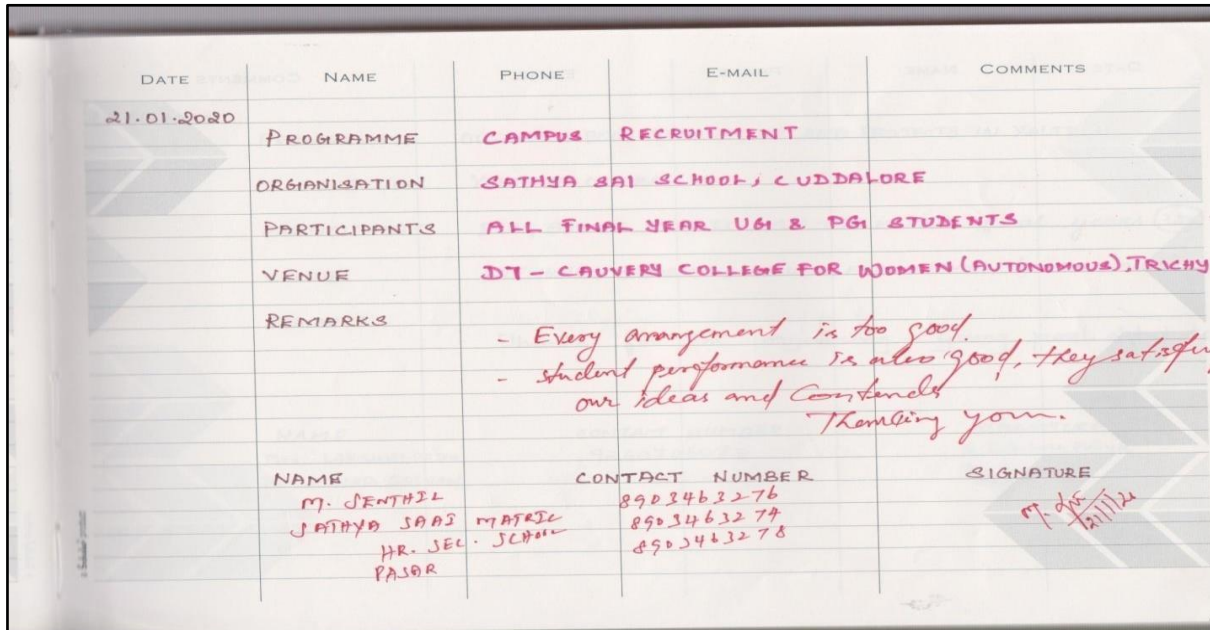 DATE NAME PHONE E-MAIL COMMENTS
21.01.2020
PROGRAMME CAMPUS RECRUITMENT
ORGANISATION SATHYA SAI SCHOOL, CUDDALORE
PARTICIPANTS ALL FINAL YEAR UG & PG STUDENTS
VENUE D7 - CAUVERY COLLEGE FOR WOMEN (AUTONOMOUS), TRICHY
REMARKS
- Every arrangement is too good.
- student performance is also good, they satisfy
our ideas and Contends
Thanking you.
NAME CONTACT NUMBER SIGNATURE
M. SENTHIL 8903463276
SATHYA SAAI MATRIC 8903463274
HR. SEC. SCHOOL 8903463278
PASAR
21/1/20